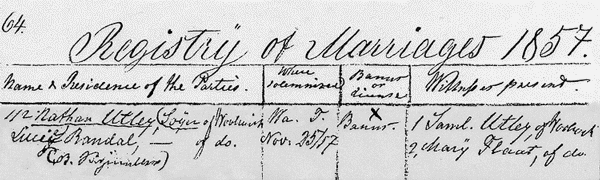 64.
Registry of Marriages 1857.
Name & Residence of the Parties. Where solemnized Banns or License Witnesses present.
112 Nathan Utley, of Woolwich Wa. T. Banns. 1 Saml. Utley of Woolwich
Lucy Randal, — of do. Nov. 25/57 2, Mary Flaut, of do.